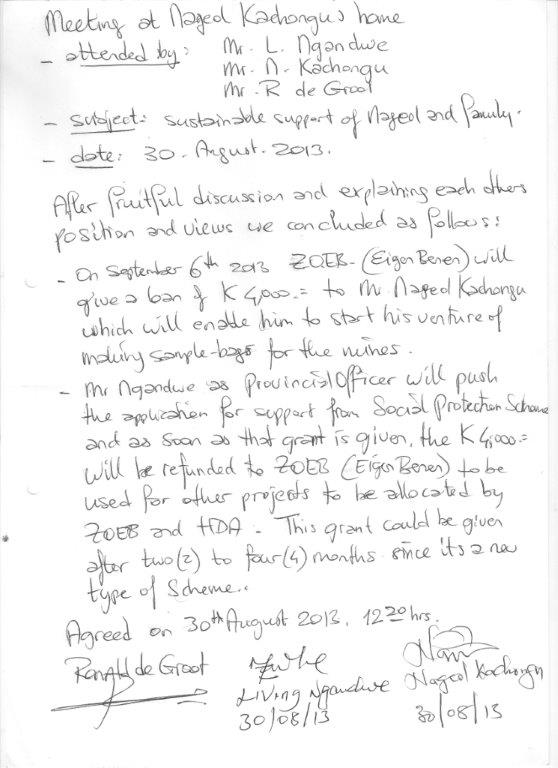 Meeting at Nageol Kachongu's home
- attended by: Mr. L. Ngandwe
Mr. N. Kachongu
Mr. R de Groot
- subject: sustainable support of Nageol and family.
- date: 30. August. 2013.
After fruitful discussion and explaining each others
position and views we concluded as follows:
- On September 6th 2013 ZOEB (Eigen Benen) will
give a loan of K 4,000.= to Mr Nageol Kachongu
which will enable him to start his venture of
making sample-bags for the mines.
- Mr Ngandwe as Provincial Officer will push
the application for support from Social Protection Scheme
and as soon as that grant is given, the K 4,000.=
will be refunded to ZOEB (Eigen Benen) to be
used for other projects to be allocated by
ZOEB and HDA. This grant could be given
after two (2) to four (4) months since its a new
type of Scheme..
Agreed on 30th August 2013. 1220 hrs.
Ronald de Groot
Living Ngandwe
Nageol Kachongu
30/08/13
30/08/13